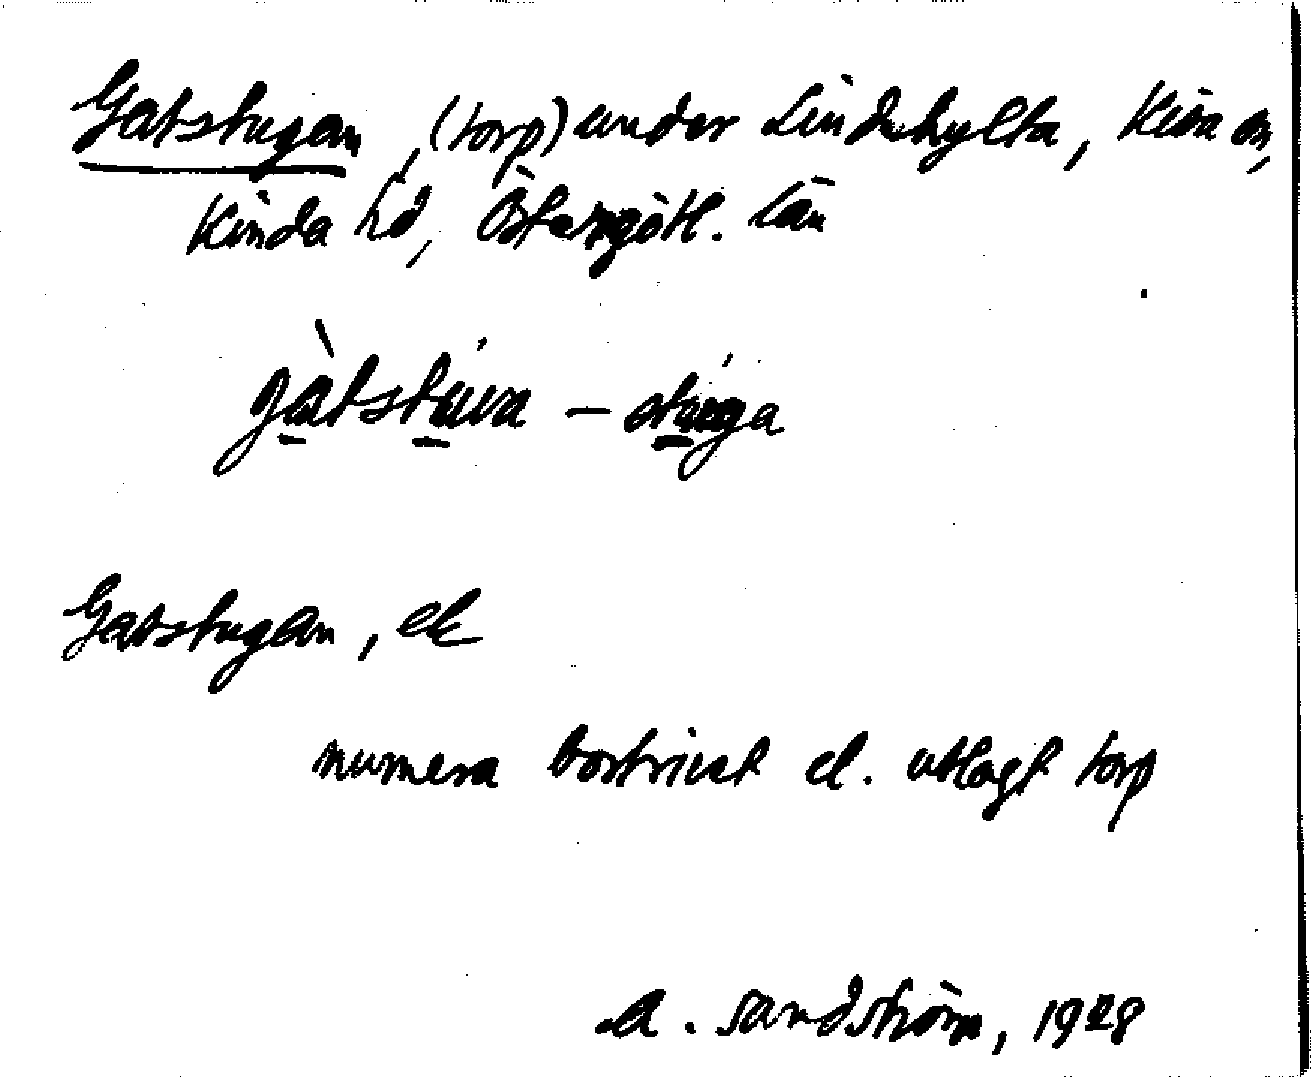 Gatstugan, (torp) under Lindehylta, Kisa sn,
Kinda hd, Östergötl. län
gàtstúva – stúga
Gatstugan, ek
numera bortrivet el. utlagt torp
A. Sandström, 1928